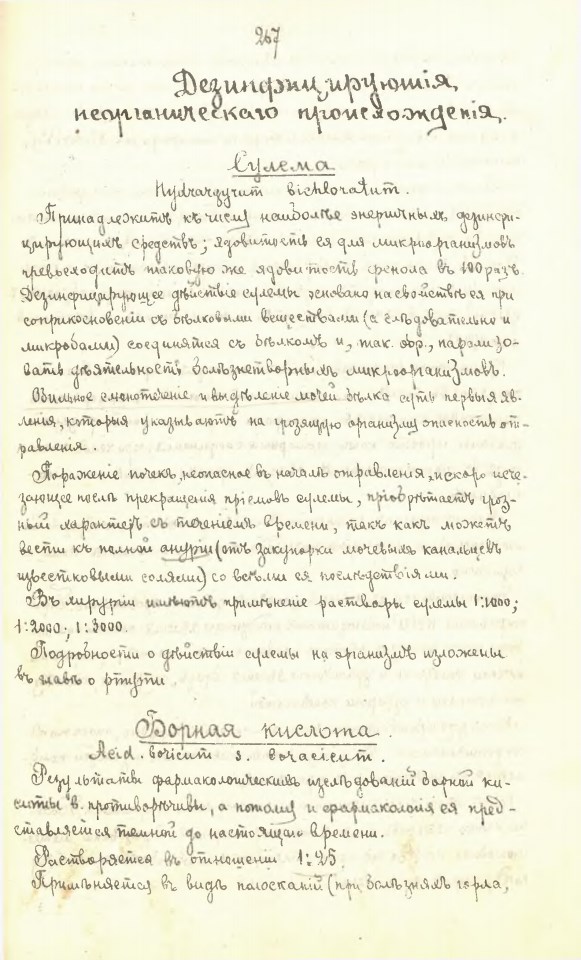 267
Дезинфицирующія
неорганическаго происхожденія.
Сулема
Hydrargyrum bichloratum.
Принадлежитъ къ числу наиболѣе энергичныхъ дезинфи-
цирующихъ средствъ; ядовитость ея для микроорганизмовъ
превосходитъ таковую же ядовитость фенола въ 100 разъ.
Дезинфицирующее дѣйствіе сулемы основано на свойствѣ ея при
соприкосновеніи съ бѣлковыми веществами (а слѣдовательно и
микробами) соединятся съ бѣлкомъ и, так. обр., парализо-
вать дѣятельность болѣзнетворныхъ микроорганизмовъ.
Обильное слюнотеченіе и выдѣленіе мочей бѣлка суть первыя яв-
ленія, которыя указываютъ на грозящую организму опасность от-
равленія.
Пораженіе почекъ, неопасное въ началѣ отравленія, и скоро исче-
зающее послѣ прекращенія пріемовъ сулемы, пріобрѣтаетъ гроз-
ный характеръ съ теченіемъ времени, такъ какъ можетъ
вести къ полной ануріи (отъ закупорки мочевыхъ канальцевъ
известковыми солями) со всѣми ея послѣдствіями.
Въ хирургіи имѣютъ примѣненіе растворы сулемы 1:1000;
1:2000; 1:3000.
Подробности о дѣйствіи сулемы на организмъ изложены
въ главѣ о ртути
Борная кислота.
Acid. boricum s. boracicum.
Результаты фармакологическихъ изслѣдованій борной ки-
слоты в. противорѣчивы, а потому и фармакологія ея пред-
ставляется темной до настоящаго времени.
Растворяется въ отношеніи 1:25.
Примѣняется въ видѣ полосканій (при болѣзняхъ горла,